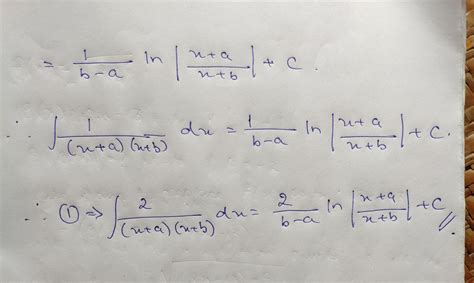 = 1/(b-a) ln |(x+a)/(x+b)| + C.
∴ ∫ 1/((x+a)(x+b)) dx = 1/(b-a) ln |(x+a)/(x+b)| + C.
∴ ① ⇒ ∫ 2/((x+a)(x+b)) dx = 2/(b-a) ln |(x+a)/(x+b)| + C //